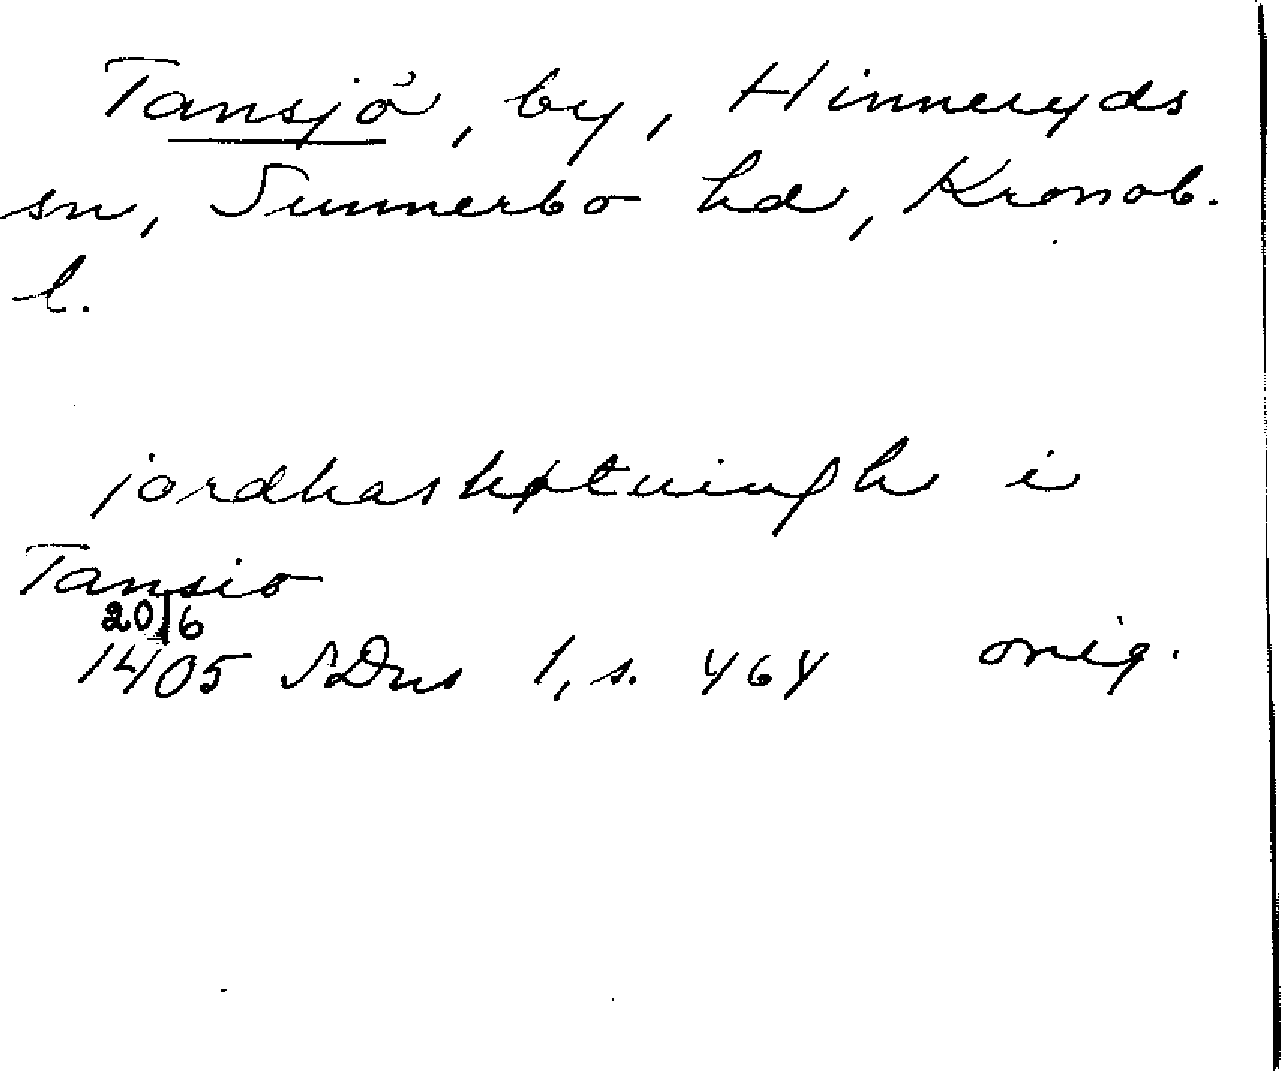 Tansjö, by, Hinneryds
sn, Sunnerbo hd, Kronob.
l.
i
Tansio
20/6
1405 SDns 1, s. 464 orig.